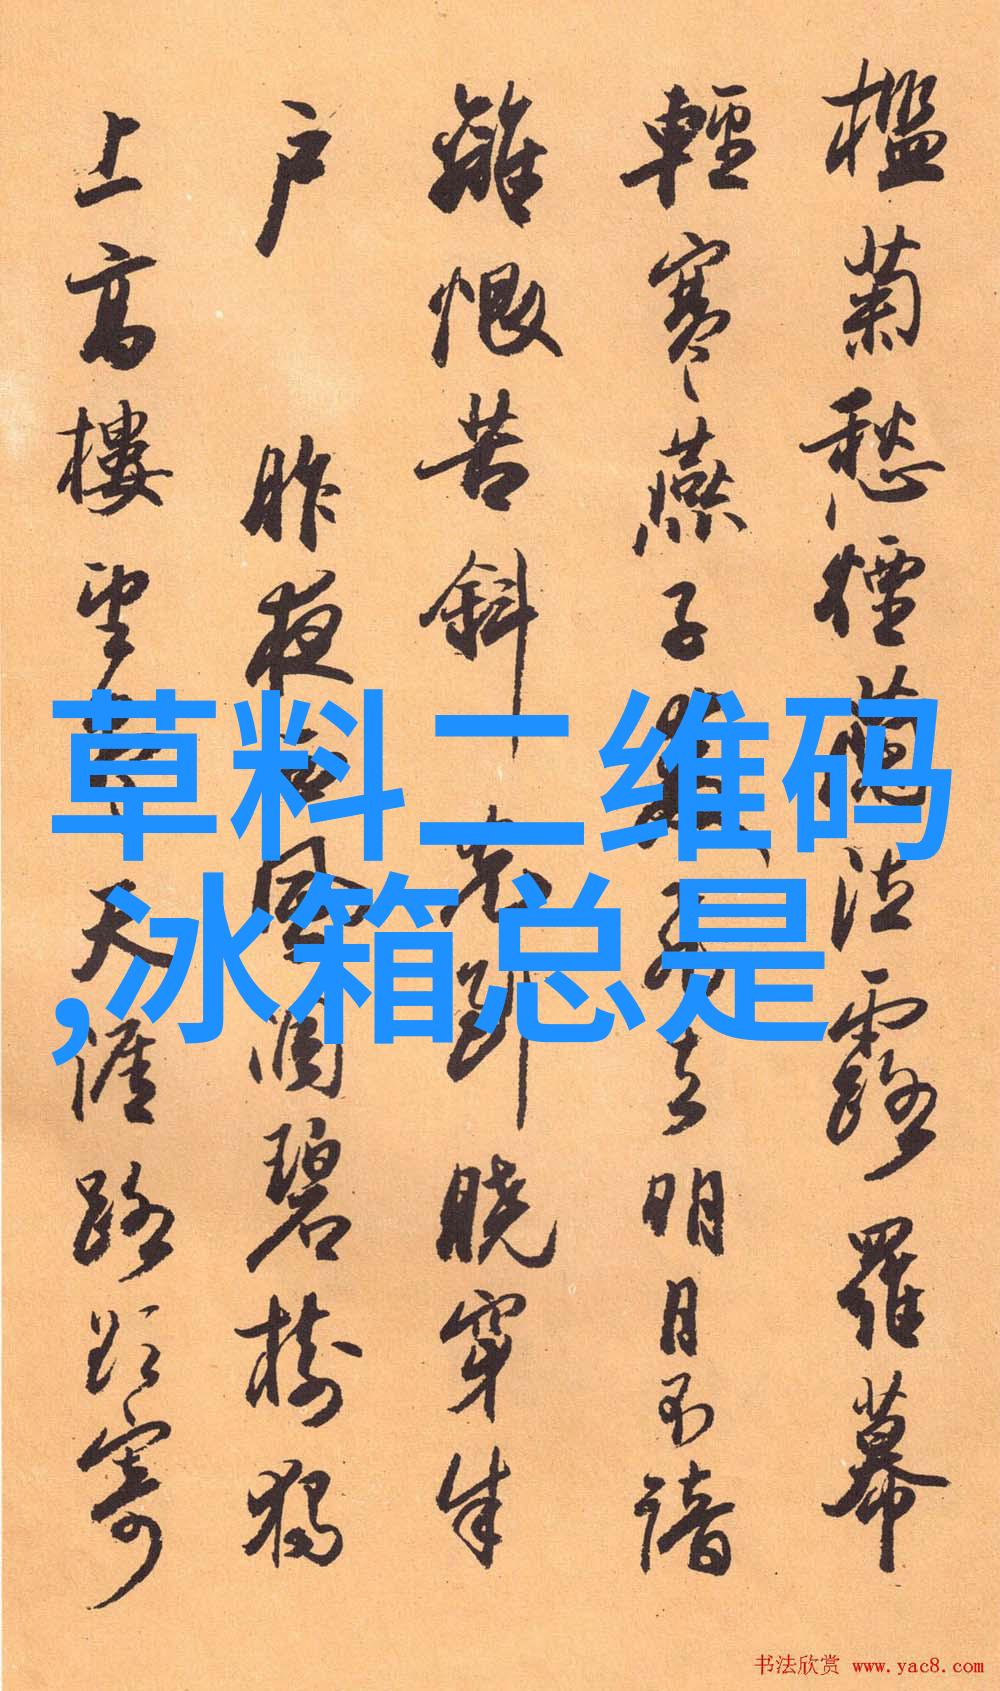 檻菊愁煙蘭泣露羅幕
輕寒燕子雙飛去明月不諳
離恨苦斜光到曉穿朱
户 昨夜西風凋碧樹獨
上高樓望盡天涯路欲寄
草料二维码
,冰箱总是
书法欣赏 www.yac8.com